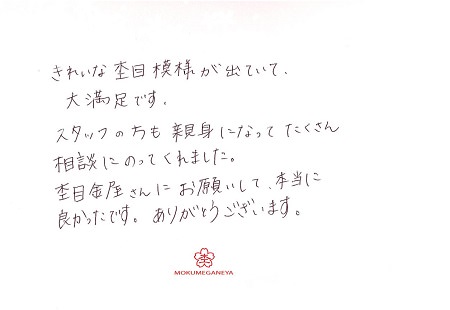 きれいな杢目模様が出ていて、
大満足です。
スタッフのちも親身になってたくさん
相談にのってくれました。
杢目金屋さんにお願いして、本当に
良かったです。ありがとうございます。
杢
MOKUMEGANEYA